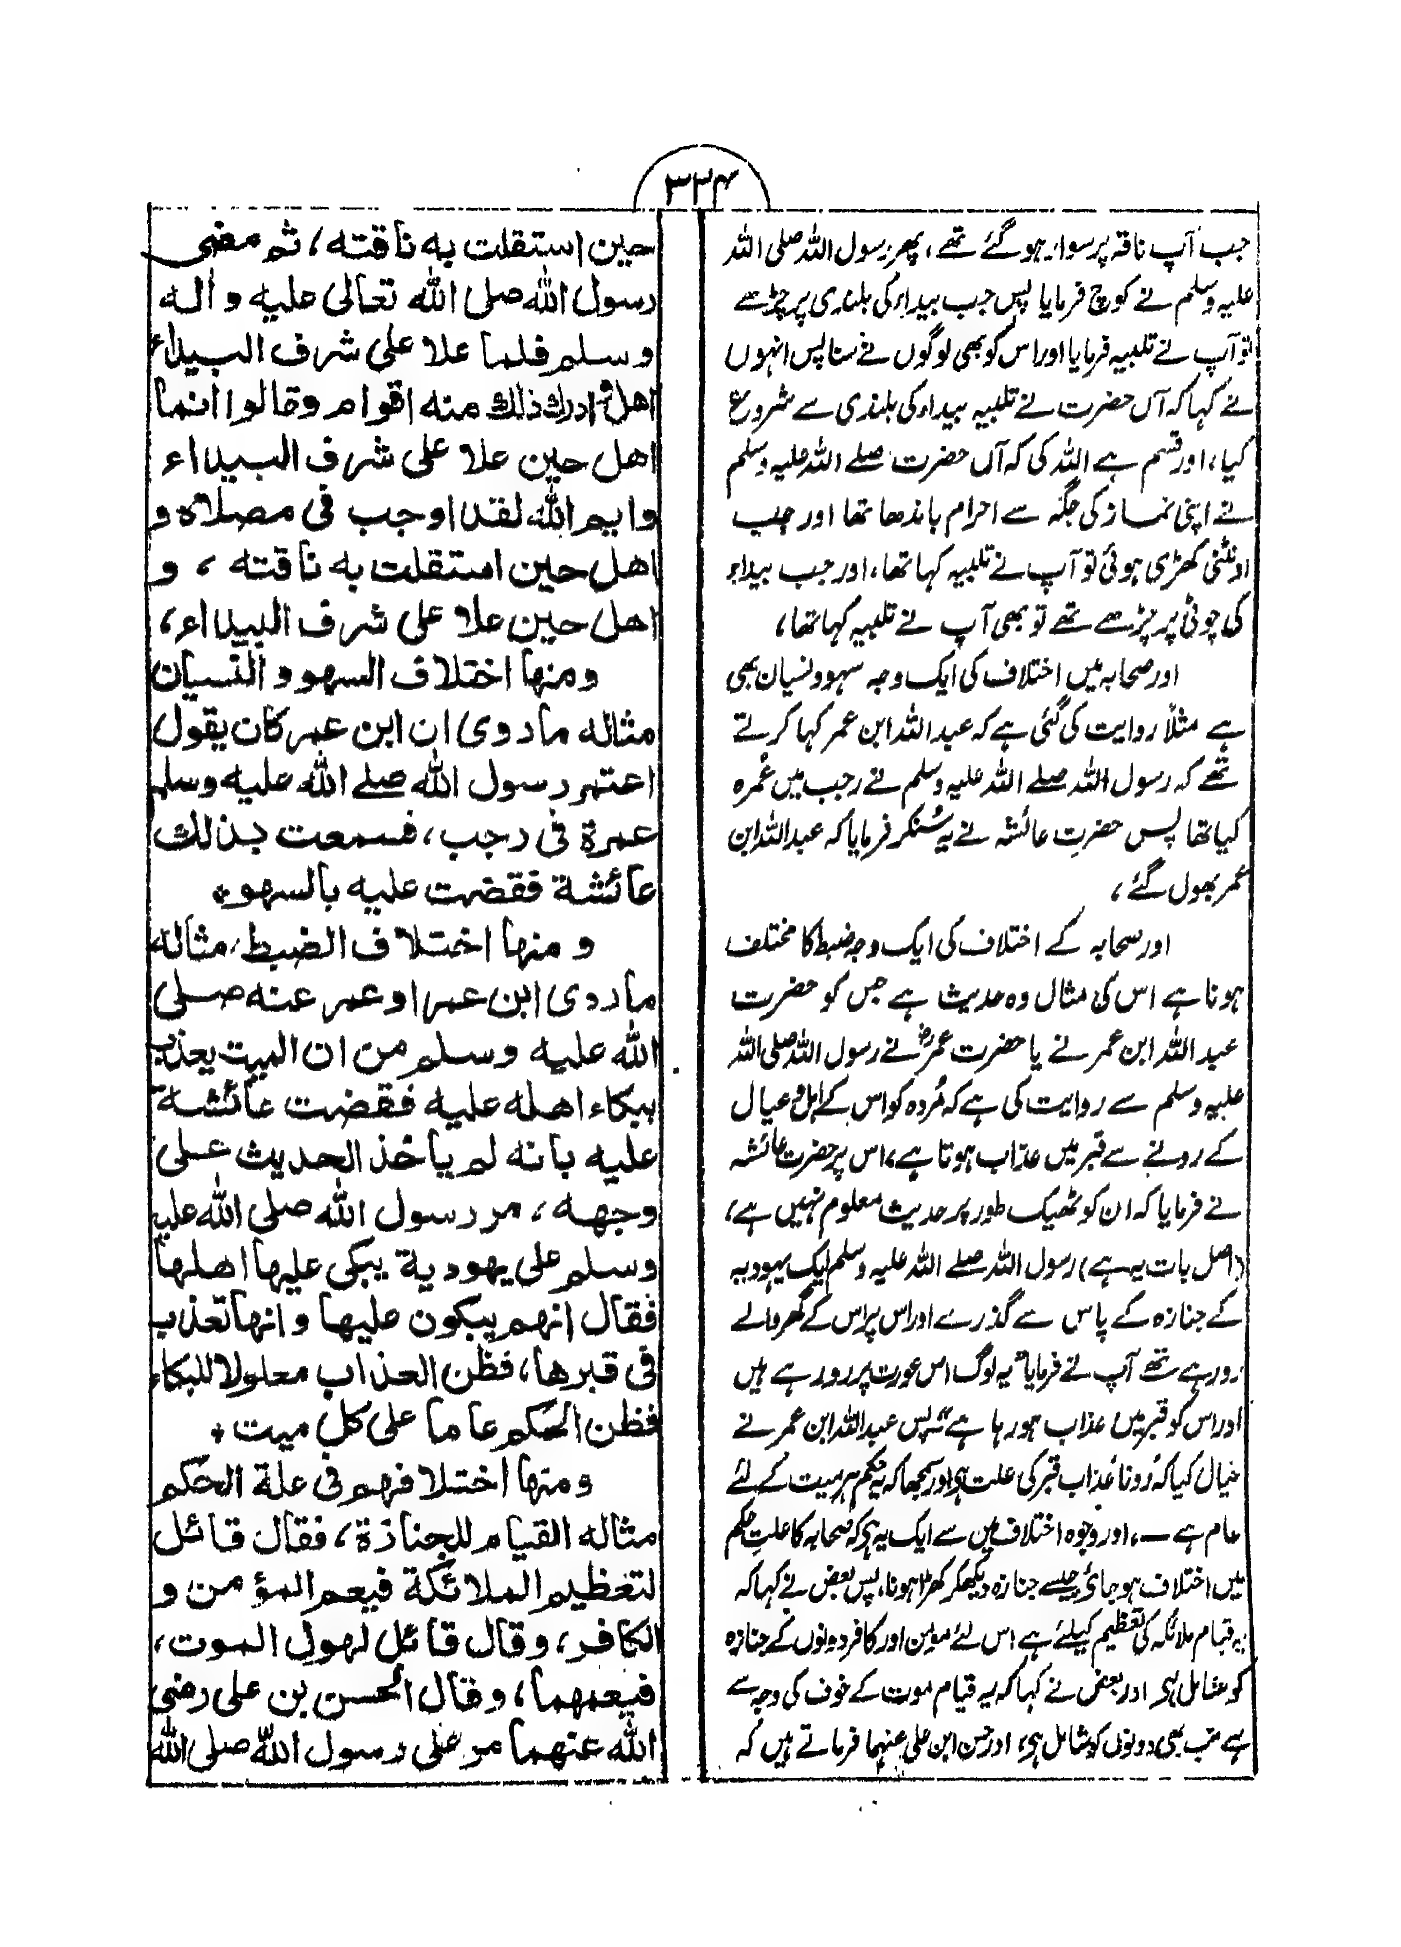 ۳۳۴
جب آپ ناقہ پر سوار ہو گئے تھے، پھر رسول اللہ صلی اللہ
علیہ وسلم نے کوچ فرمایا پس جب بیداء کی بلندی پر چڑھے
تو آپ نے تلبیہ فرمایا اور اس کو بھی لوگوں نے سنا پس انہوں
نے کہا کہ آں حضرت نے تلبیہ بیداء کی بلندی سے شروع
کیا، اور قسم ہے اللہ کی کہ آں حضرت صلے اللہ علیہ وسلم
نے اپنی نماز کی جگہ سے احرام باندھا تھا اور جب
اونٹنی کھڑی ہوئی تو آپ نے تلبیہ کہا تھا، اور جب بیداء
کی چوٹی پر چڑھے تھے تو بھی آپ نے تلبیہ کہا تھا،
اور صحابہ میں اختلاف کی ایک وجہ سہو و نسیان بھی
ہے مثلاً روایت کی گئی ہے کہ عبد اللہ ابن عمر کہا کرتے
تھے کہ رسول اللہ صلے اللہ علیہ وسلم نے رجب میں عُمرہ
کیا تھا پس حضرتِ عائشہ نے یہ سُنکر فرمایا کہ عبد اللہ ابن
عمر بھول گئے،
اور صحابہ کے اختلاف کی ایک وجہ ضبط کا مختلف
ہونا ہے اس کی مثال وہ حدیث ہے جس کو حضرت
عبد اللہ ابن عمر نے یا حضرت عمرؓ نے رسول اللہ صلی اللہ
علیہ وسلم سے روایت کی ہے کہ مُردہ کو اس کے اہل و عیال
کے رونے سے قبر میں عذاب ہوتا ہے، اس پر حضرت عائشہ
نے فرمایا کہ ان کو ٹھیک طور پر حدیث معلوم نہیں ہے،
(اصل بات یہ ہے) رسول اللہ صلے اللہ علیہ وسلم ایک یہودیہ
کے جنازہ کے پاس سے گذرے اور اس پر اس کے گھر والے
رو رہے تھے آپ نے فرمایا "یہ لوگ اس عورت پر رو رہے ہیں
اور اس کو قبر میں عذاب ہو رہا ہے" پس عبد اللہ ابن عمر نے
خیال کیا کہ رونا عذاب قبر کی علت ہے اور سمجھا کہ یہ حکم ہر میت کے لئے
عام ہے ــ، اور وجوہ اختلاف میں سے ایک یہ ہے کہ صحابہ کا علتِ حکم
میں اختلاف ہو جائے جیسے جنازہ دیکھکر کھڑا ہونا، پس بعض نے کہا کہ
یہ قیام ملائکہ کی تعظیم کیلئے ہے اس لئے مومن اور کافر دونوں کے جنازہ
کو شامل ہے اور بعض نے کہا کہ یہ قیام موت کے خوف کی وجہ سے
ہے تب بھی دونوں کو شامل ہے، اور حسن ابن علی عنہما فرماتے ہیں کہ
حين استقلت به ناقته، ثم مضى
رسول الله صلى الله تعالى عليه و اله
و سلم فلما علا على شرف البيداء
اهل و ادرك ذلك منه اقوام و قالوا انما
اهل حين علا على شرف البيداء
و ايم الله لقد اوجب فى مصلاه و
اهل حين استقلت به ناقته، و
اهل حين علا على شرف البيداء،
و منها اختلاف السهو و النسيان
مثاله ما روى ان ابن عمر كان يقول
اعتمر رسول الله صلے الله عليه وسلم
عمرة فى رجب، فسمعت بذلك
عائشة فقضت عليه بالسهو ٭
و منها اختلاف الضبط، مثاله
ما روى ابن عمر او عمر عنه صلى
الله عليه وسلم من ان الميت يعذب
ببكاء اهله عليه فقضت عائشة
عليه بانه لم ياخذ الحديث على
وجهه، مر رسول الله صلى الله عليه
وسلم على يهودية يبكى عليها اهلها
فقال انهم يبكون عليها و انها تعذب
فى قبرها، فظن العذاب معلولا للبكاء
فظن الحكم عاما على كل ميت ٭
و منها اختلافهم فى علة الحكم
مثاله القيام للجنازة، فقال قائل
لتعظيم الملائكة فيعم المؤمن و
الكافر، و قال قائل لهول الموت،
فيعمهما، و قال الحسن بن على رضى
الله عنهما مر على رسول الله صلى الله